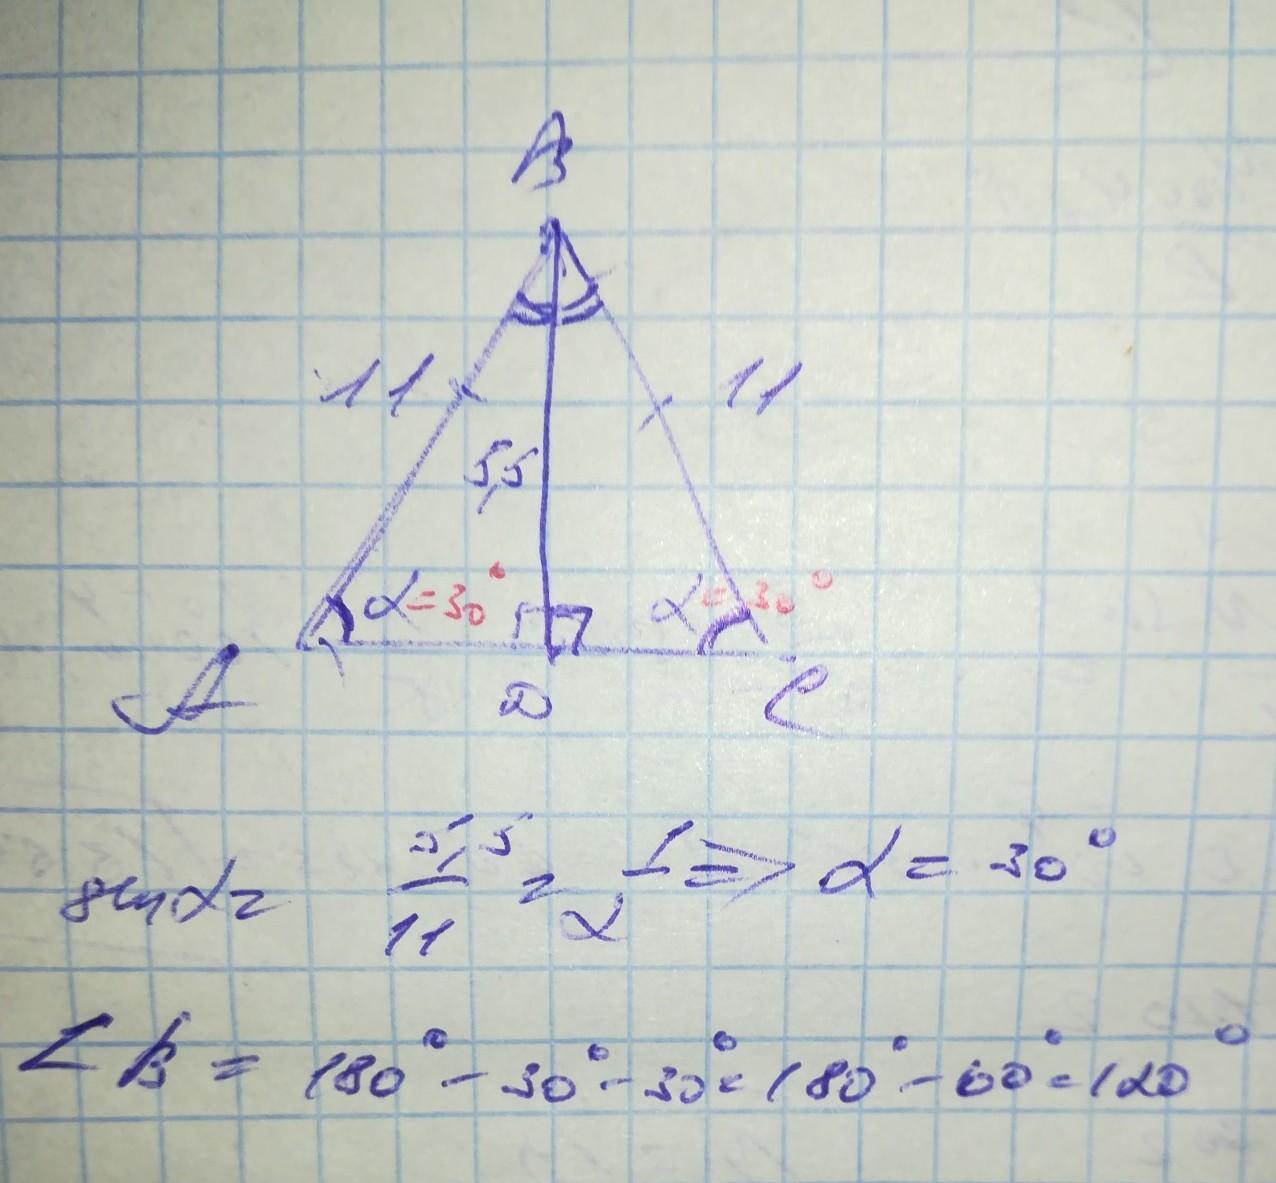 B
11 11
5,5
α=30° α=30°
A D C
sin α = 5,5/11 = 1/2 => α = 30°
∠B = 180° - 30° - 30° = 180° - 60° = 120°